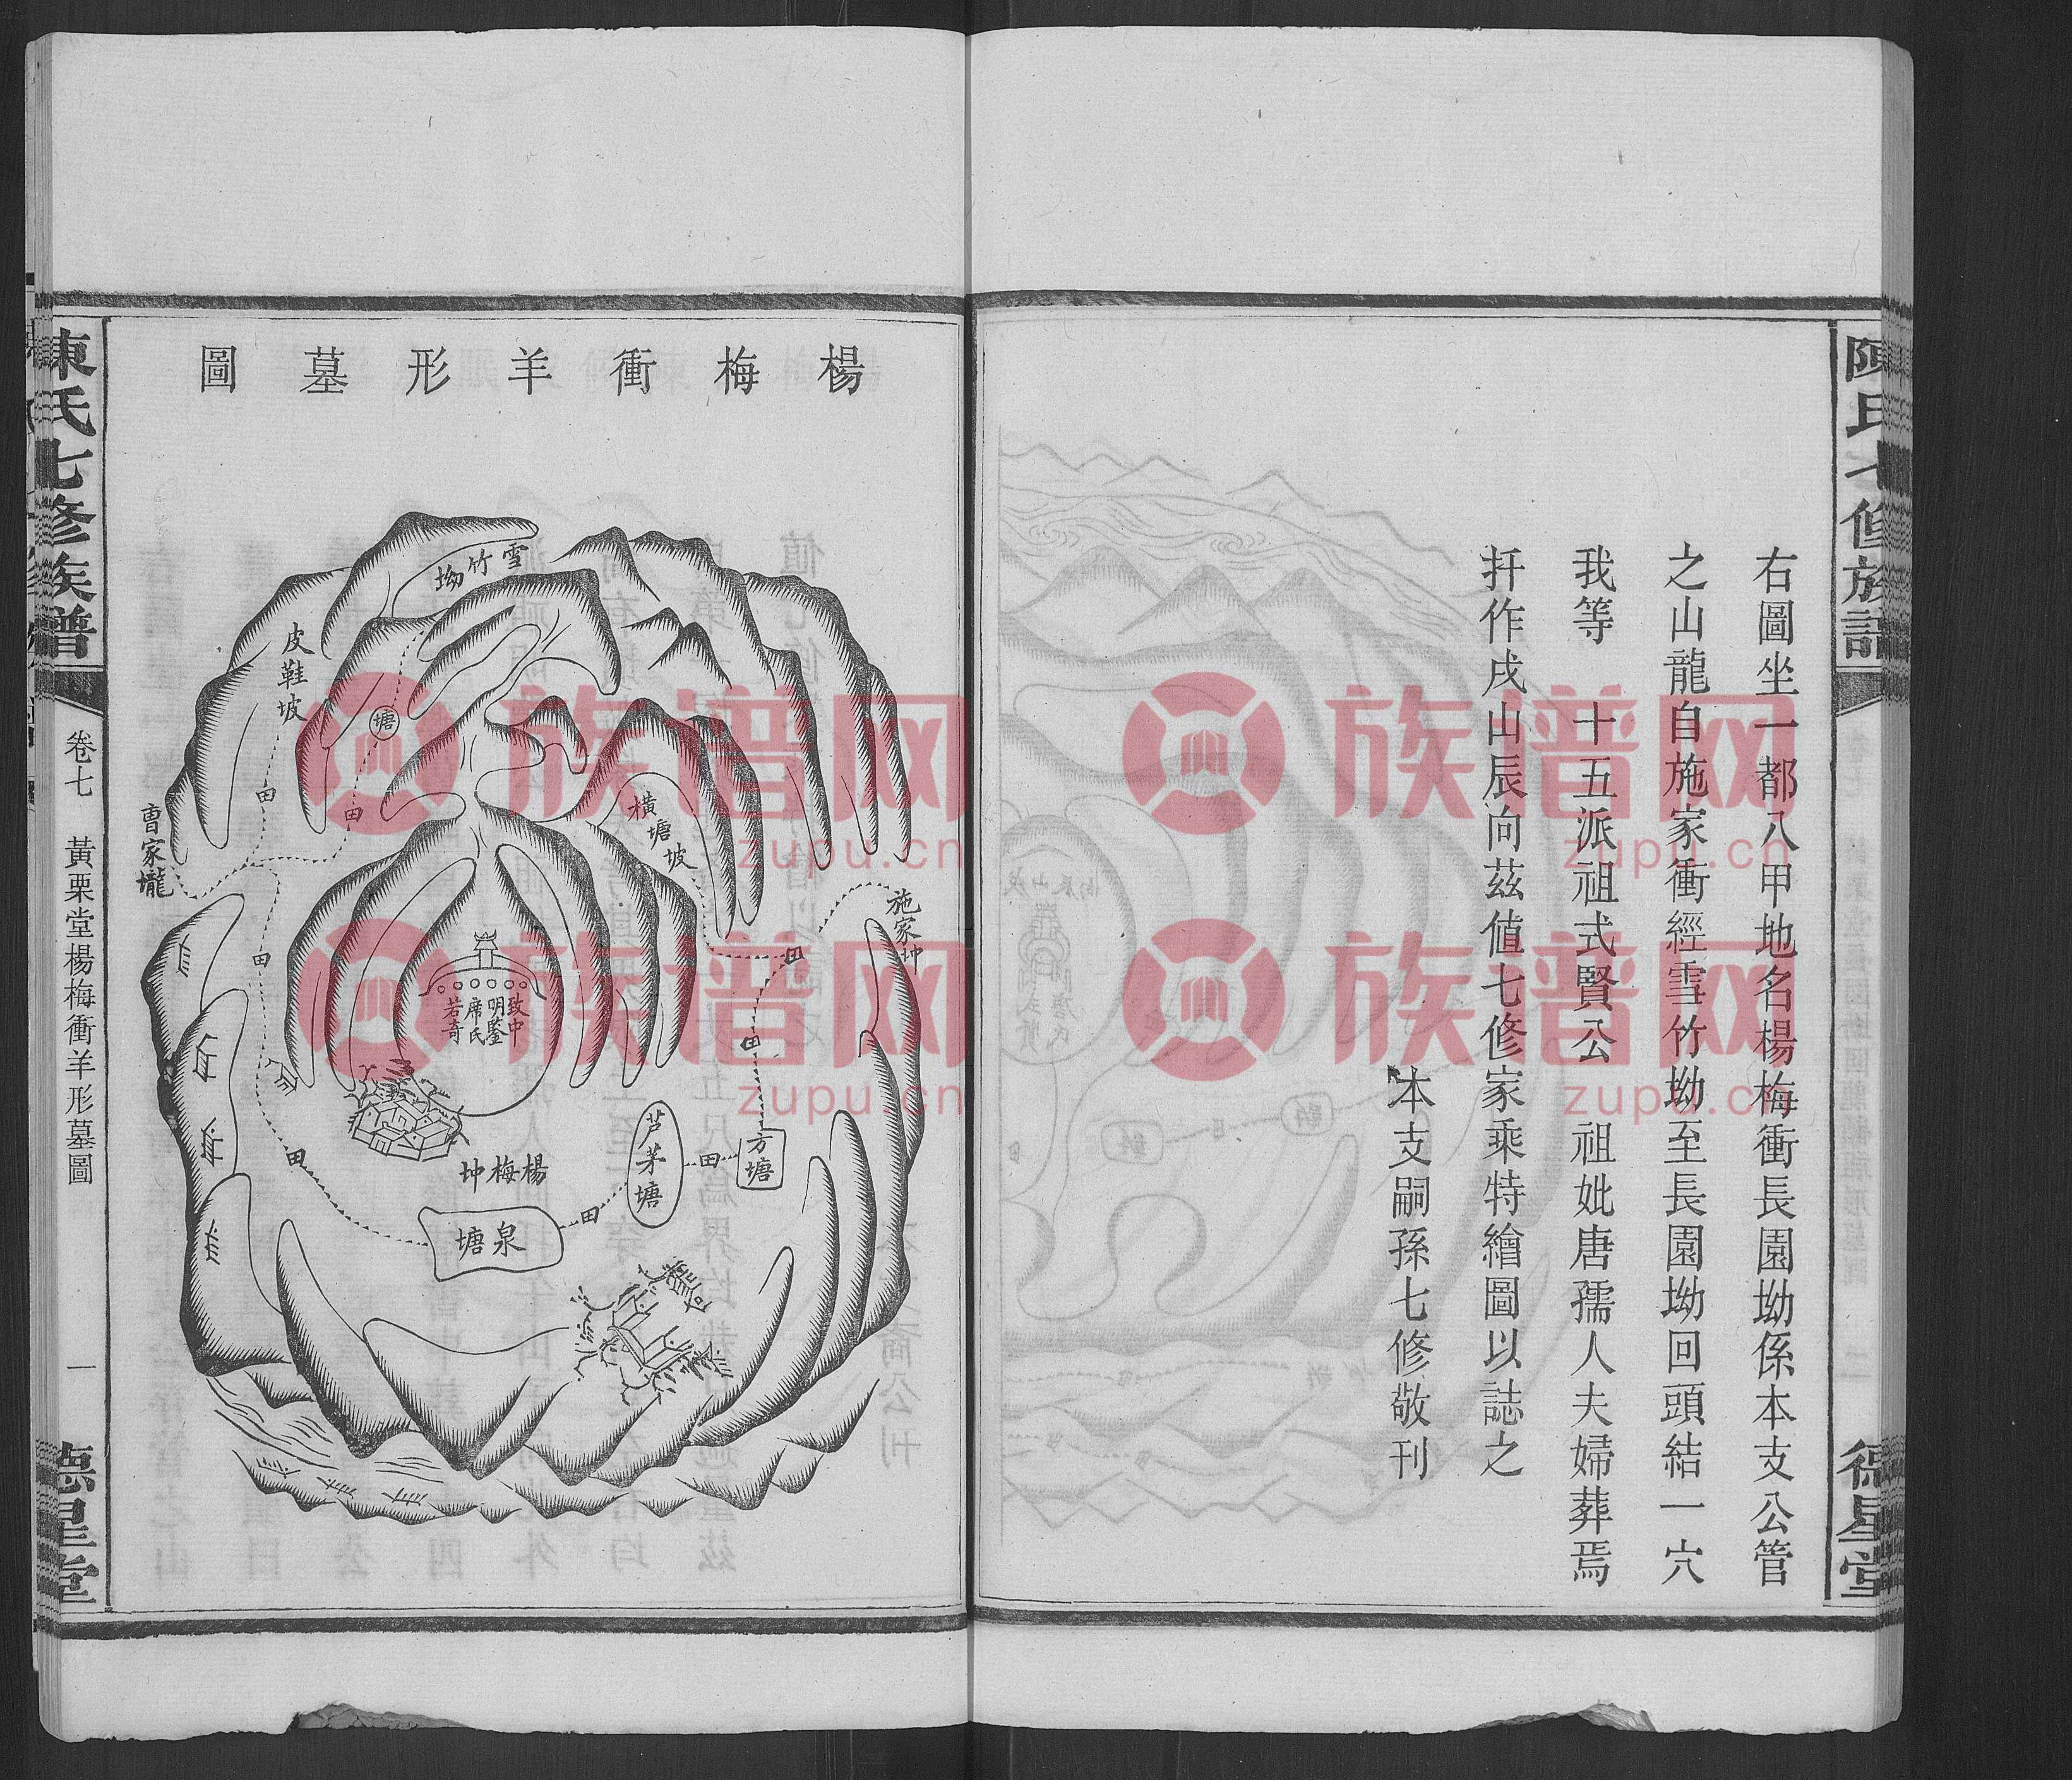 陳氏七修族譜
德星堂
右圖坐一都八甲地名楊梅衝長園坳係本支公管
之山龍自施家衝經雪竹坳至長園坳回頭結一穴
我等　十五派祖式賢公　祖妣唐孺人夫婦葬焉
扞作戌山辰向茲値七修家乘特繪圖以誌之
本支嗣孫七修敬刊
楊梅衝羊形墓圖
雪竹坳
皮鞋坡
塘
田
田
曹家壠
橫塘坡
施家坤
田
田
田
致中
明鑒
席氏
若奇
田
楊梅坤
芦茅塘
田
方塘
田
泉塘
陳氏七修族譜
卷七
黃栗堂楊梅衝羊形墓圖
一
德星堂
族谱网
zupu.cn
族谱网
zupu.cn
族谱网
zupu.cn
族谱网
zupu.cn